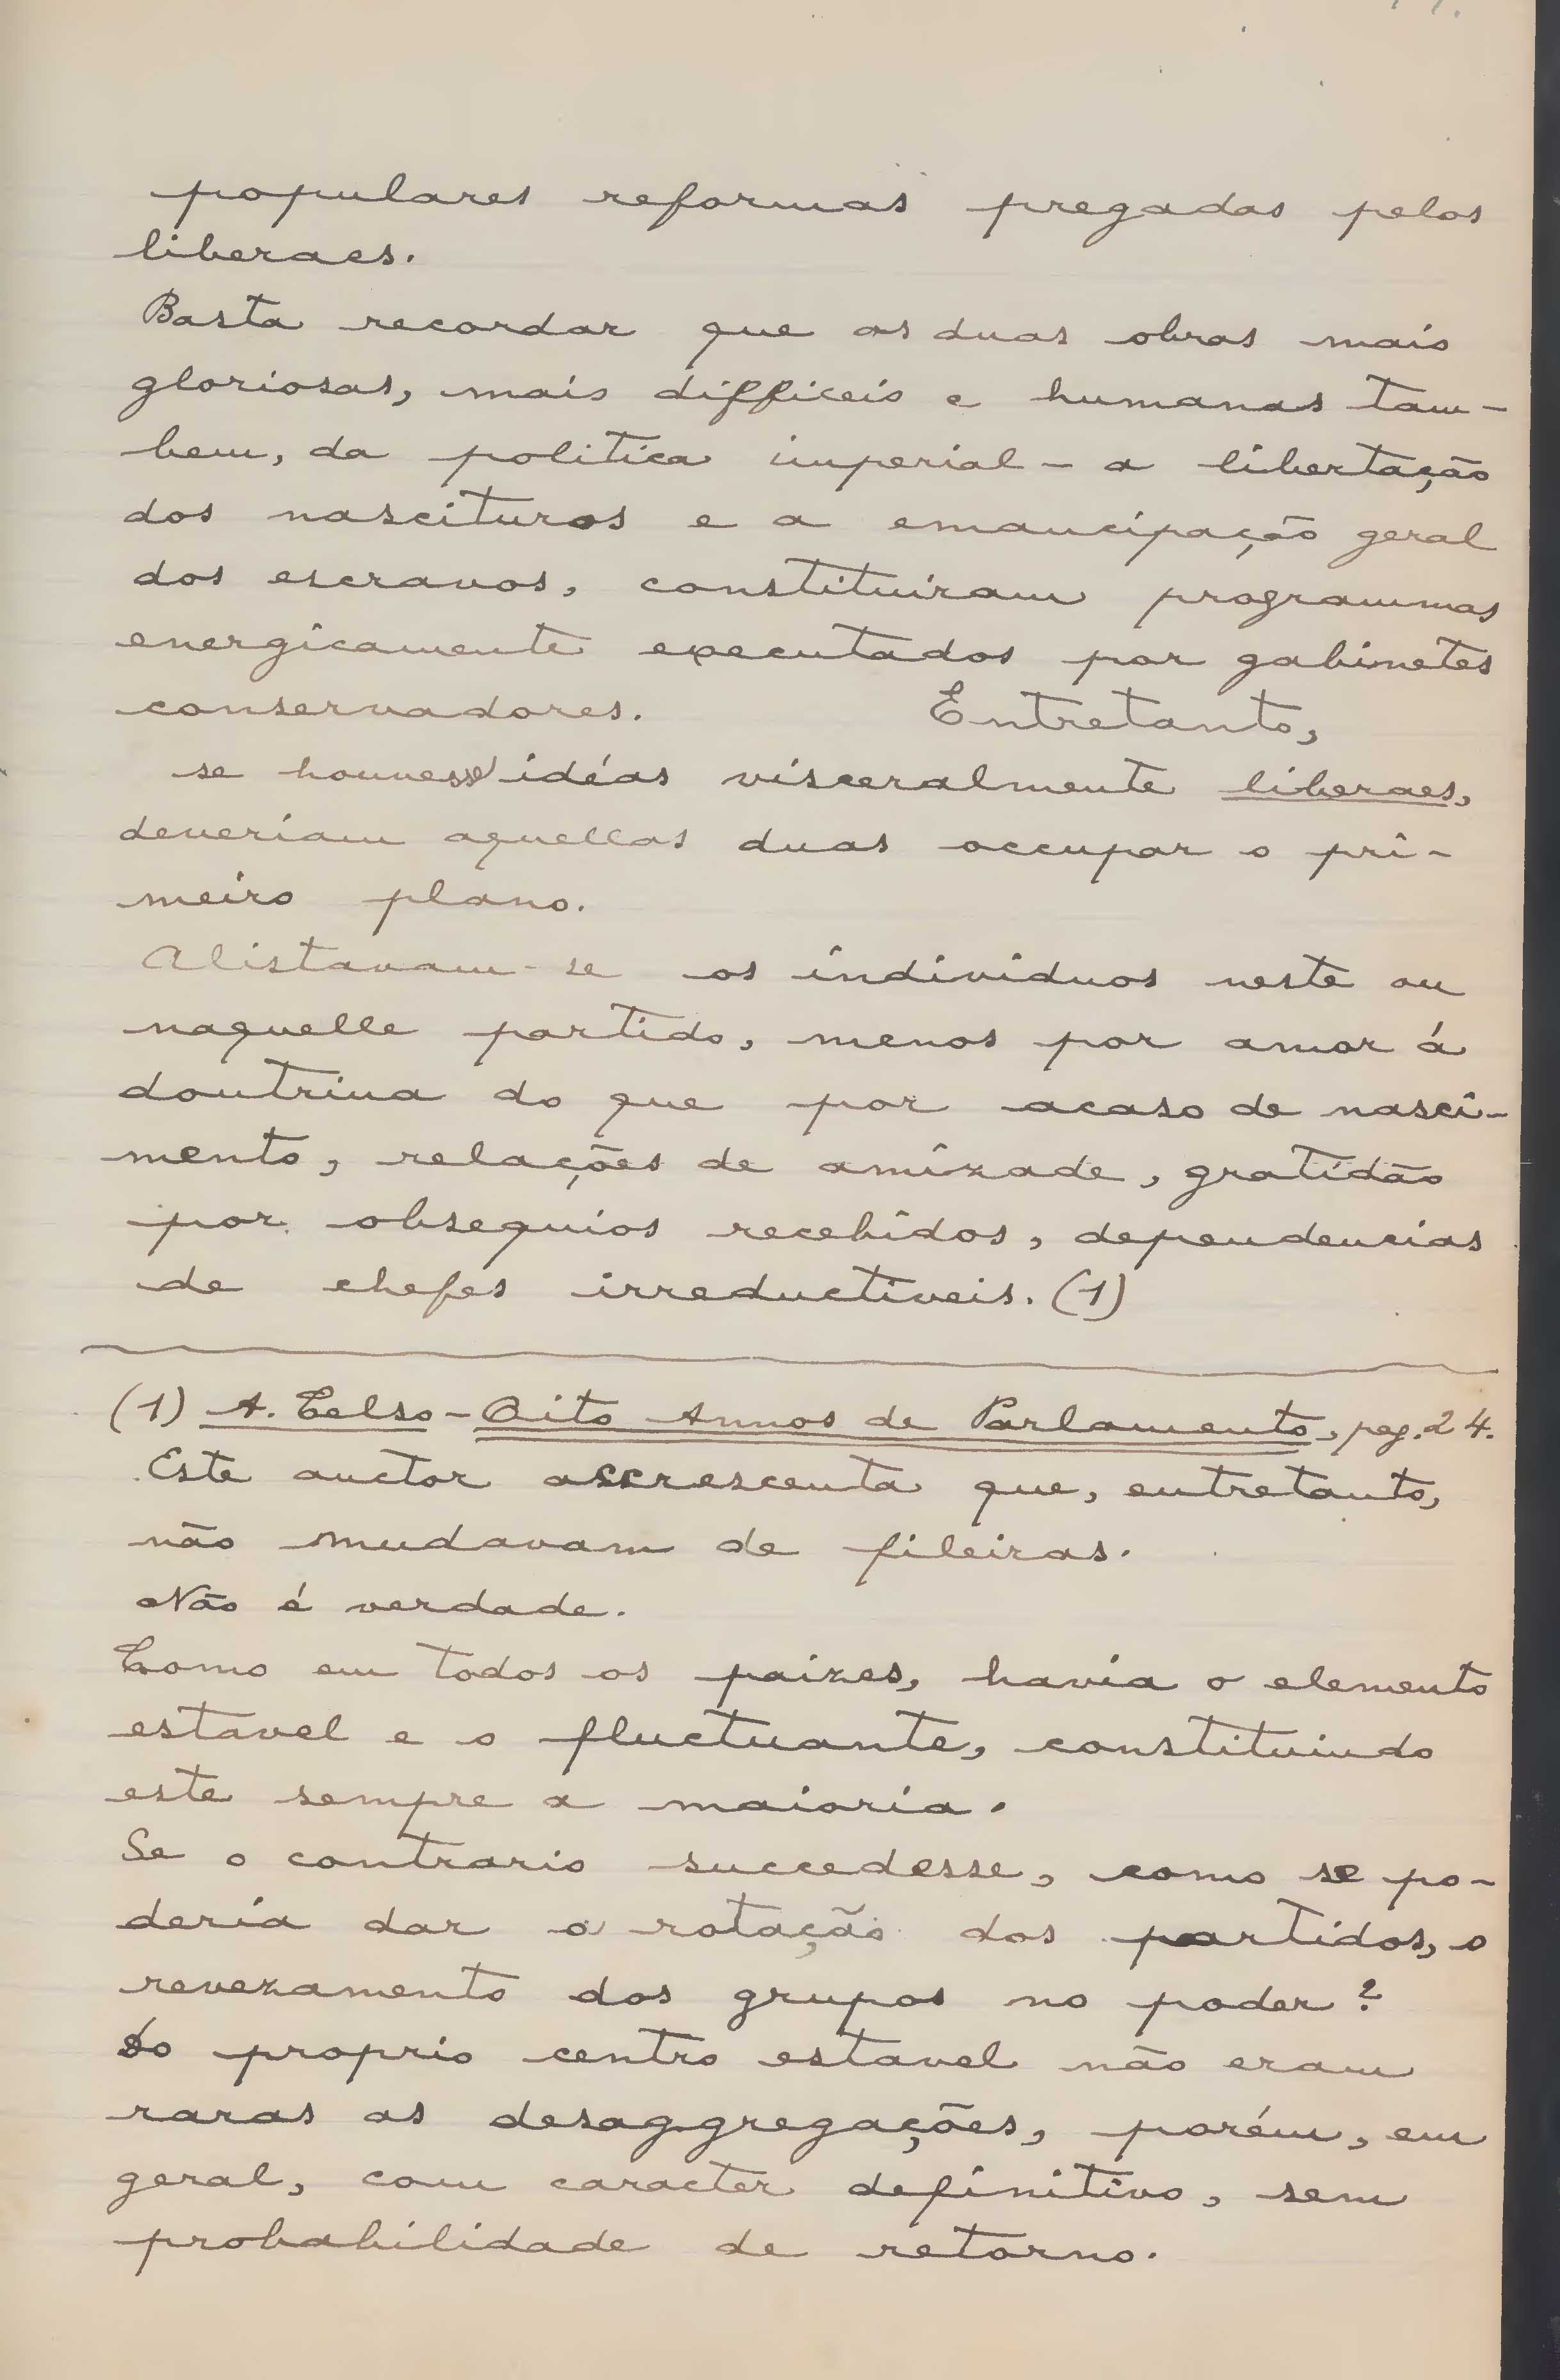 populares reformas pregadas pelos
liberaes.
Basta recordar que as duas obras mais
gloriosas, mais difficeis e humanas tam-
bem, da politica imperial - a libertação
dos nascituros e a emancipação geral
dos escravos, constituiram programmas
energicamente executados por gabinetes
conservadores. Entretanto,
se houvesse idéas visceralmente liberaes,
deveriam aquellas duas occupar o pri-
meiro plano.
Alistavam-se os individuos neste ou
naquelle partido, menos por amor á
doutrina do que por acaso de nasci-
mento, relações de amizade, gratidão
por obsequios recebidos, dependencias
de chefes irreductiveis. (1)
(1) A. Celso - Oito Annos de Parlamento, pag. 24.
Este auctor accrescenta que, entretanto,
não mudavam de fileiras.
Não é verdade.
Como em todos os paizes, havia o elemento
estavel e o fluctuante, constituindo
este sempre a maioria.
Se o contrario succedesse, como se po-
deria dar a rotação dos partidos, o
revezamento dos grupos no poder?
Do proprio centro estavel não eram
raras as desaggregações, porém, em
geral, com caracter definitivo, sem
probabilidade de retorno.